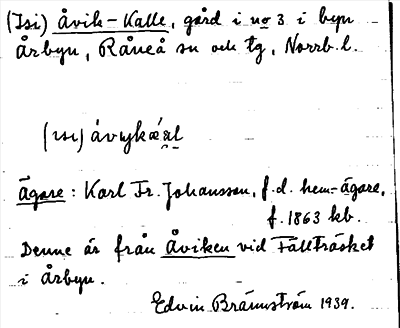 (Isi) Åvik-Kalle, gård i no 3 i byn
Årbyn, Råneå sn och tg, Norrb. l.
Ägare: Karl Fr. Johansson, f.d. hem.-ägare,
f. 1863 kb.
Denne är från Åviken vid Fällträsket
i Årbyn.
Edvin Brännström 1939.